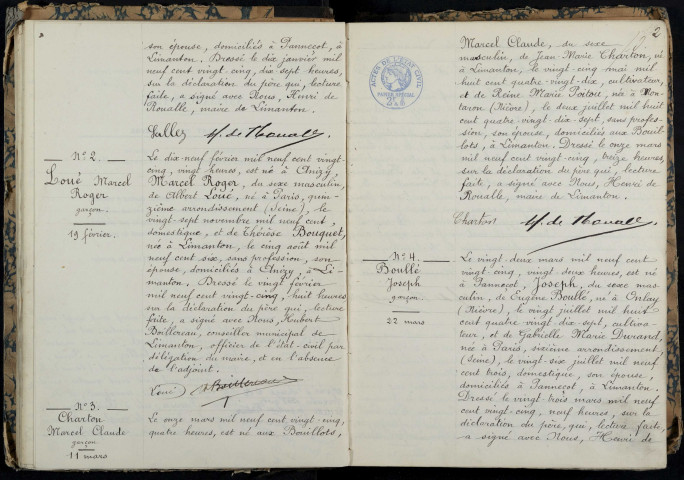 son épouse, domiciliés à Pannecot, à
Limanton. Dressé le dix janvier mil
neuf cent vingt-cinq, dix-sept heures,
sur la déclaration du père qui, lecture
faite, a signé avec Nous, Henri de
Roualle, maire de Limanton.
H. de Roualle
N° 2
Loué Marcel
Roger
garçon
19 février.
Le dix-neuf février mil neuf cent vingt-
cinq, vingt heures, est né à Anizy,
Marcel Roger, du sexe masculin,
de Albert Loué, né à Paris, quin-
zième arrondissement (Seine), le
vingt-sept novembre mil neuf cent,
domestique, et de Thérèse Bouquet,
née à Limanton, le cinq août mil
neuf cent six, sans profession, son
épouse, domiciliés à Anizy, à Li-
manton. Dressé le vingt février
mil neuf cent vingt-cinq, huit heures
sur la déclaration du père qui, lecture
faite, a signé avec Nous, Hubert
Boillereau, conseiller municipal de
Limanton, officier de l'état-civil par
délégation du maire, et en l'absence
de l'adjoint.
Loué Boillereau
N° 3
Charton
Marcel Claude
garçon
11 mars
Le onze mars mil neuf cent vingt-cinq,
quatre heures, est né aux Bouillots,
2
ACTES DE L'ETAT CIVIL
PAPIER SPECIAL
Marcel Claude, du sexe
masculin, de Jean-Marie Charton, né
à Limanton, le vingt-cinq mai mil
huit cent quatre-vingt-dix, cultivateur,
et de Reine Marie
née à Mon-
taron (Nièvre), le deux juillet mil huit
cent quatre-vingt-dix-sept, sans profes-
sion, son épouse, domiciliés aux Bouil-
lots, à Limanton. Dressé le onze mars
mil neuf cent vingt-cinq, treize heures,
sur la déclaration du père qui, lecture
faite, a signé avec Nous, Henri de
Roualle, maire de Limanton.
Charton H. de Roualle
N° 4
Boullé
Joseph
garçon
22 mars
Le vingt-deux mars mil neuf cent
vingt-cinq, vingt-deux heures, est né
à Pannecot Joseph, du sexe mas-
culin, de Eugène Boullé, né à Onlay
(Nièvre), le vingt juillet mil huit
cent quatre-vingt-dix-sept, cultiva-
teur, et de Gabrielle Marie Durand,
née à Paris, sixième arrondissement,
(Seine), le vingt-six juillet mil neuf
cent trois, domestique, son épouse,
domiciliés à Pannecot, à Limanton.
Dressé le vingt-trois mars mil neuf
cent vingt-cinq, neuf heures, sur la
déclaration du père, qui, lecture faite,
a signé avec Nous, Henri de